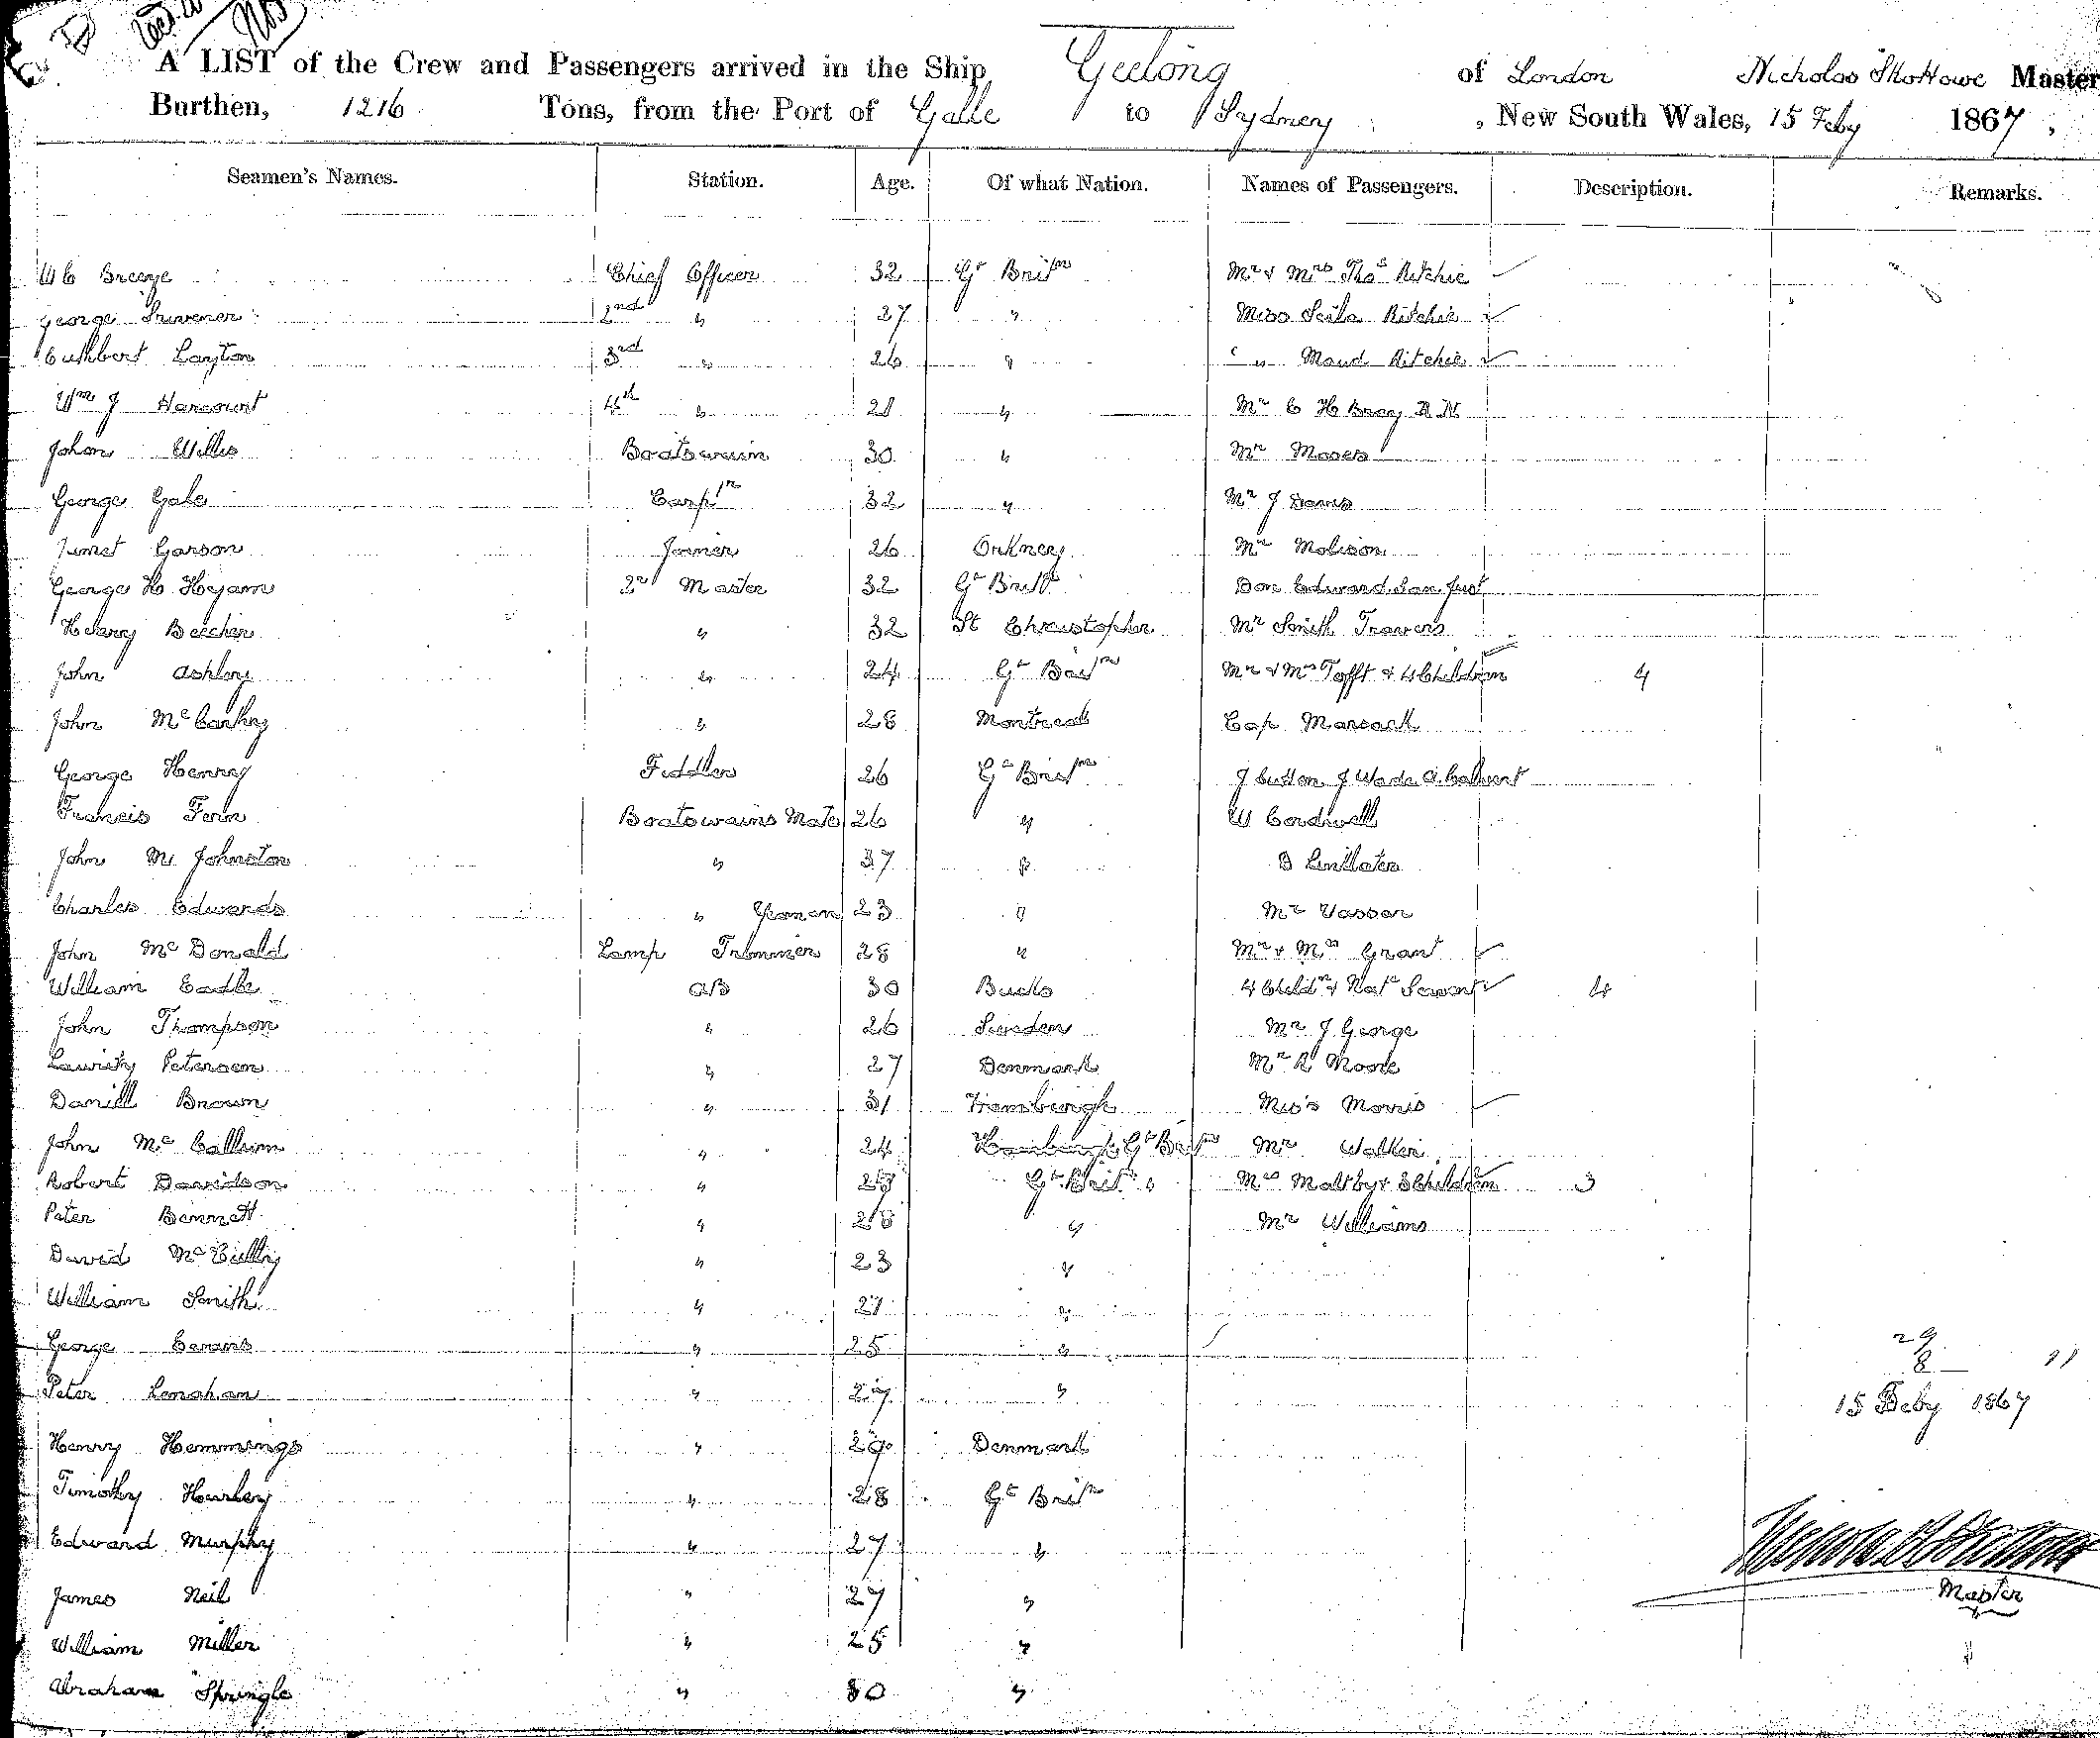 A LIST of the Crew and Passengers arrived in the Ship, Geelong of London Nicholas Skottowe Master
Burthen, 1216 Tons, from the Port of Galle to Sydney, New South Wales, 15 Feby 1867,
Seamen's Names. Station. Age. Of what Nation. Names of Passengers. Description. Remarks.
W C Breeze Chief Officer 32 Gt Britn Mr & Mrs Thos Ritchie
George Scrivener 2nd " 27 " Miss Ritchie
Cuthbert Layton 3rd " 26 " " Maud Ritchie
Wm J Harcourt 4th " 21 " Mr C H Bray R N
John Willis Boatswain 30 " Mr Moses
George Gale Carptr 32 " Mr J Davis
Garson Joiner 26 Orkney Mr Molison
George H Heyam 2r Master 32 Gt Brit Don Edward San Just
Henry Beecher " 32 St Christopher Mr Smith Travers
John Ashley " 24 Gt Britn Mr & Mrs Tofft & 4 Children 4
John McCarthy " 28 Montreal Cap Marsack
George Henry Fiddler 26 Gt Britn J Sutton J Wade A Calvert
Francis Fenn Boatswains Mate 26 " W Cordwell
John M Johnston " 37 " D Linllater
Charles Edwards " Yeoman 23 " Mr Vasser
John McDonald Lamp Trimmer 28 " Mr & Mrs Grant
William Eadle AB 30 Bucks 4 Childn & Nate Servant 4
John Thompson " 26 Sweden Mr J George
Lauritz Petersen " 27 Denmark Mr R Moore
Daniell Brown " 31 Hamburgh Miss Morris
John McCallum " 24 Hamburgh Gt Britn Mr Walker
Robert Davidson " Gt Brit " Mrs Maltby & 3 Children 3
Peter Bennett " 28 " Mr Williams
David McCully " 23 "
William Smith " 21 "
George Evans " 25 "
29
8 11
Peter Lenahan " 27 "
15 Feby 1867
Henry Hemmings " 29 Denmark
Timothy Hurley " 28 Gt Britn
Edward Murphy " 27 "
James Neil " 27 "
Master
William Miller " 25 "
Abraham Springle " 30 "